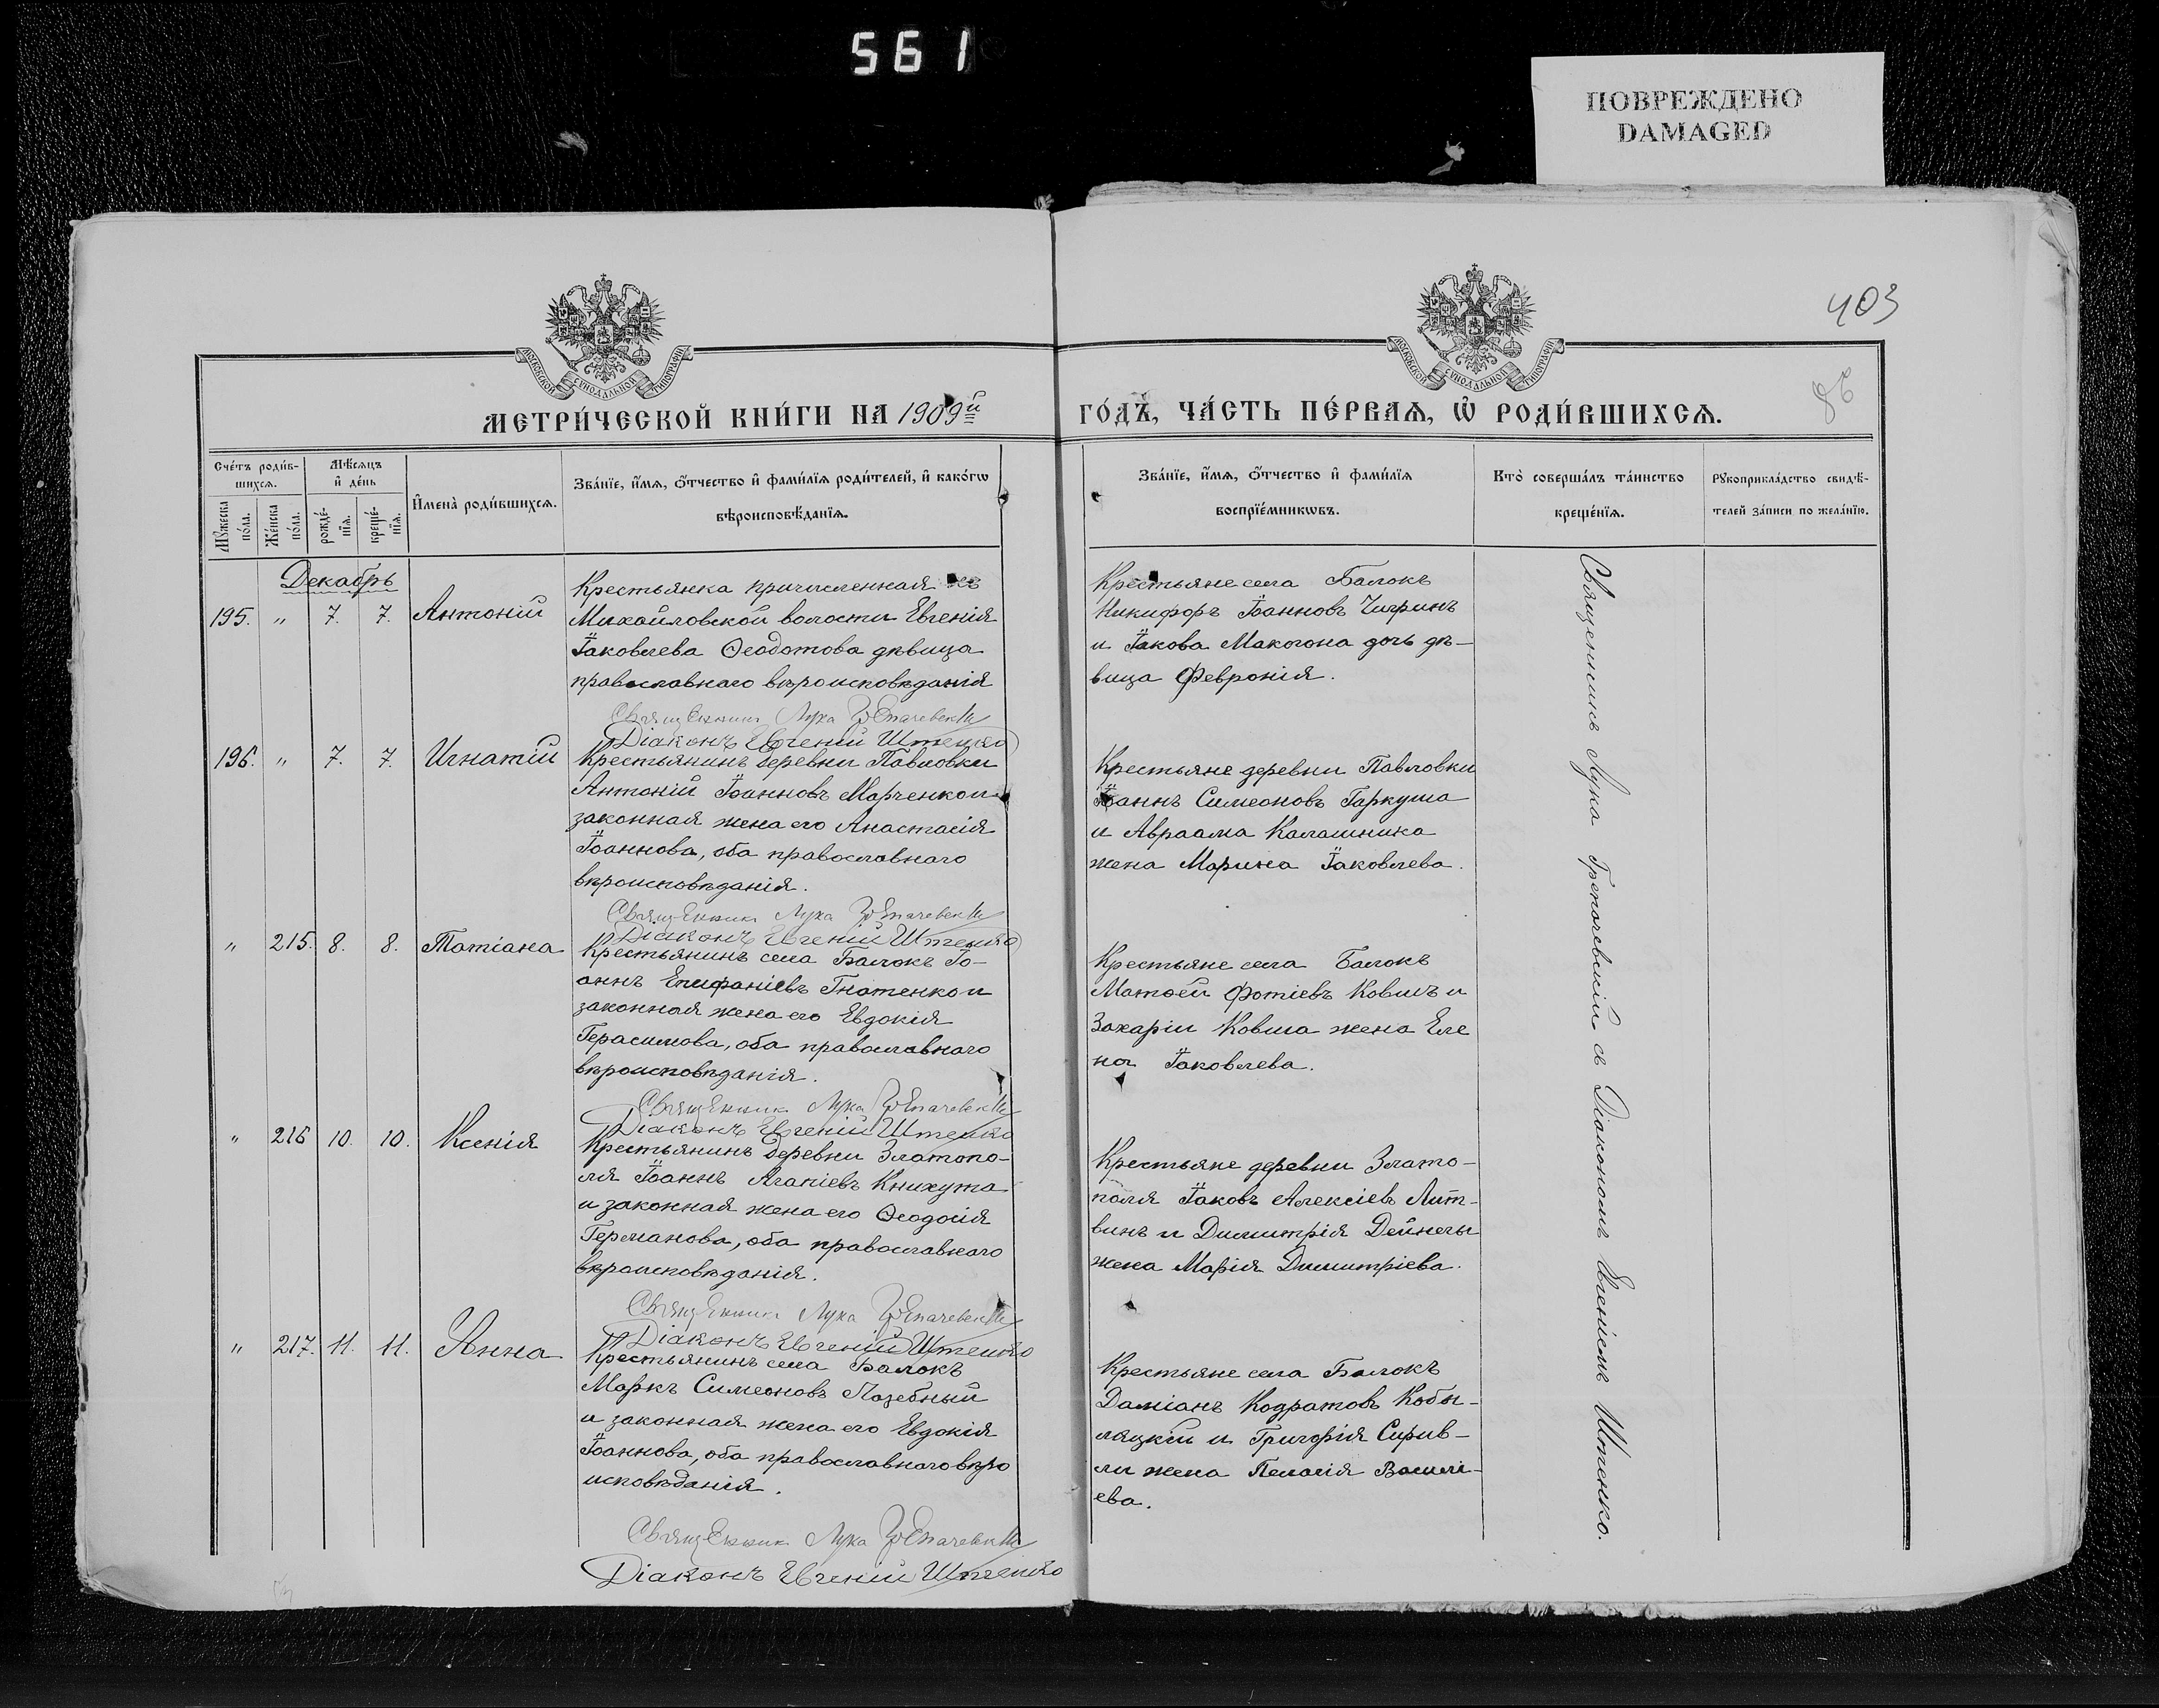 561
ПОВРЕЖДЕНО
DAMAGED
403
86
МОСКОВСКОЙ СѴНОДАЛЬНОЙ ТИПОГРАФІИ
МОСКОВСКОЙ СѴНОДАЛЬНОЙ ТИПОГРАФІИ
МЕТРИ́ЧЕСКОЙ КНИ́ГИ НА 1909й
ГО́ДЪ, ЧА́СТЬ ПЕ́РВАѦ, Ѡ҆ РОДИ́ВШИХСѦ.
Сче́тъ роди́в-
шихсѧ.
Мѣ́сѧцъ
и҆ де́нь
Мꙋ́жеска
по́ла.
Же́нска
по́ла.
рожде́-
нїѧ.
креще́-
нїѧ.
И҆мена̀ роди́вшихсѧ.
Зва́нїе, и҆́мѧ, ѻ҆́тчество и҆ фами́лїѧ роди́телей, и҆ како́гѡ
вѣроисповѣ́данїѧ.
Зва́нїе, и҆́мѧ, ѻ҆́тчество и҆ фами́лїѧ
воспрїе́мникѡвъ.
Кто̀ соверша́лъ та́инство
креще́нїѧ.
Рꙋкоприкла́дство свидѣ́-
телей за́писи по жела́нїю.
Декабрь
195. " 7. 7. Антоній
Крестьянка причисленная къ
Михайловской волости Евгенія
Іаковлева Ѳеодотова дѣвица
православнаго вѣроисповѣданія
Священникъ Лука
Діаконъ Евгеній Штенко
Крестьяне села Балокъ
Никифоръ Іоанновъ Чигринъ
и Іакова Макогона дочь дѣ-
вица Февронія.
196. " 7. 7. Игнатій
Крестьянинъ деревни Павловки
Антоній Іоанновъ Марченко и
законная жена его Анастасія
Іоаннова, оба православнаго
вѣроисповѣданія.
Священникъ Лука
Діаконъ Евгеній Штенко
Крестьяне деревни Павловки
Іоаннъ Симеоновъ Гаркуша
и Авраама Калашника
жена Марина Іаковлева.
" 215. 8. 8. Татіана
Крестьянинъ села Балокъ Іо-
аннъ Епифаніевъ Гнатенко и
законная жена его Евдокія
Герасимова, оба православнаго
вѣроисповѣданія.
Священникъ Лука
Діаконъ Евгеній Штенко
Крестьяне села Балокъ
Матѳей Фотіевъ Ковшъ и
Захаріи Ковша жена Еле
на Іаковлева.
" 216 10. 10. Ксенія
Крестьянинъ деревни Златопо-
ля Іоаннъ Агапіевъ Книжута
и законная жена его Ѳеодосія
Германова, оба православнаго
вѣроисповѣданія.
Священникъ Лука
Діаконъ Евгеній Штенко
Крестьяне деревни Злато-
поля Іаковъ Алексіевъ Лит-
винъ и Димитрія Дейнеги
жена Марія Димитріева.
" 217. 11. 11. Анна
Крестьянинъ села Балокъ
Маркъ Симеоновъ Лозебный
и законная жена его Евдокія
Іоаннова, оба православнаго вѣро
исповѣданія.
Священникъ Лука
Діаконъ Евгеній Штенко
Крестьяне села Балокъ
Даміанъ Кодратовъ Кобы-
ляцкій и Григорія Сирив-
ли жена Пелагія Василі-
ева.
Священникъ Лука съ Діакономъ Евгеніемъ Штенко.